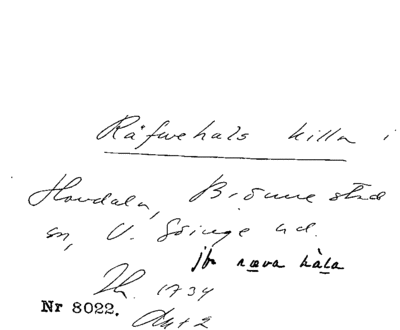 Räfwehals killa i
Hovdala, Brönnestad
sn, V. Göinge hd.
jfr ræva hàla
Lh. 1734
Nr 8022.